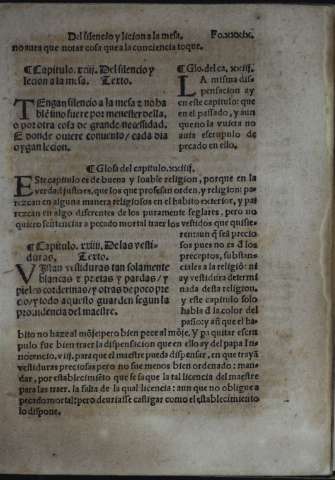 Del silencio y licion a la mesa. Fo.xxxix.
no aura que notar cosa que a la conciencia toque.
¶ Capitulo. xxiij. Del silencio y
licion a la mesa. Texto.
TEngan silencio a la mesa z no ha
blē sino fuere por menester della,
o por otra cosa de grande necessidad.
E donde quiere conuento / cada dia
oygan licion.
¶ Glo. del ca. xxiij.
LA misma dis
pensacion ay
en este capitulo: que
en el passado, y aun
que no la vuiera no
auia escrupulo de
pecado en ello.
¶ Glosa del capitulo. xxiiij.
ESte capitulo es de buena y loable religion, porque en la
verdad justo es, que los que professan orden, y religion: pa
rezcan en alguna manera religiosos en el habito exterior, y pa
rezcan en algo diferentes de los puramente seglares, pero no
quiero sentenciar a pecado mortal traer los vestidos que quisie-
¶ Capitulo. xxiiij. De las vesti-
duras. Texto.
VIstan vestiduras tan solamente
blancas z prietas z pardas / z
pieles corderinas / z otras de poco pre
cio / z todo aquesto guarden segun la
prouidencia del maestre.
ren aun q̄ seā precio
sos pues no es d̄ los
preceptos, substan-
ciales a la religiō: ni
ay vestidura determi
nada desta religion.
y este capitulo solo
habla d̄ la color del
paño: z aū que el ha-
bito no haze al mōje: pero bien pece al mōje. Y pa quitar escru
pulo fue bien traer la dispensacion que en ello ay del papa In
nocencio. viij. para que el maestre pueda dispensar, en que trayā
vestiduras preciosas pero no fue menos bien ordenado: man-
dar, por establecimiēto que se saque la tal licencia del maestre
para las traer. la falta de la qual licencia: aun que no obligue a
pecado mortal: pero deuriasse castigar como el establecimiento
lo dispone.